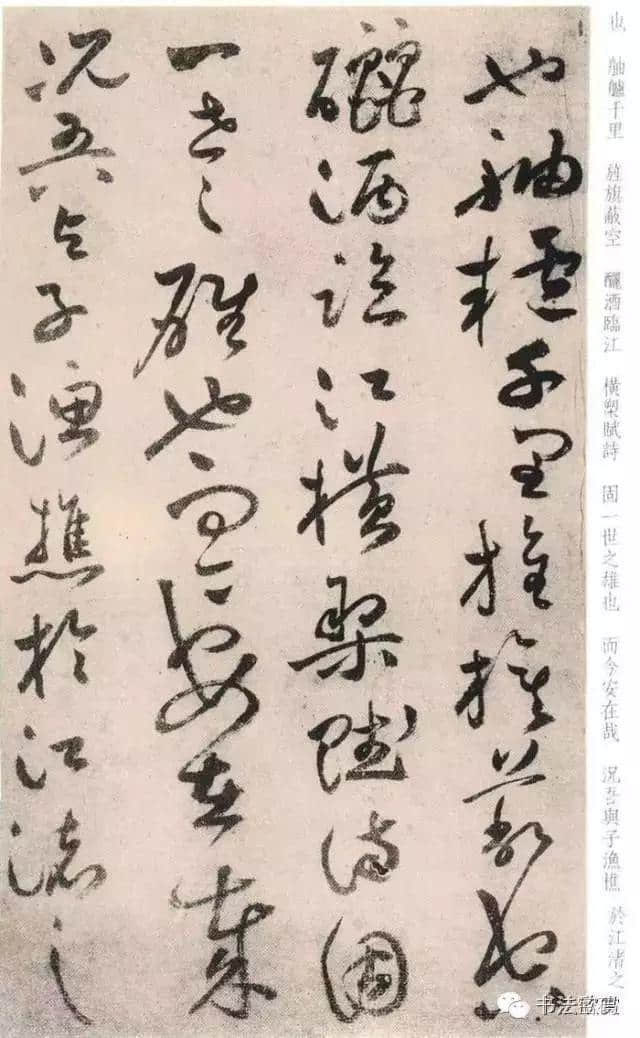 也舳艫千里旌旗蔽空
釃酒臨江橫槊賦詩固
一世之雄也而今安在哉
況吾與子漁樵於江渚之
也 舳艫千里 旌旗蔽空 釃酒臨江 橫槊賦詩 固一世之雄也 而今安在哉 況吾與子漁樵 於江渚之
书法欣赏